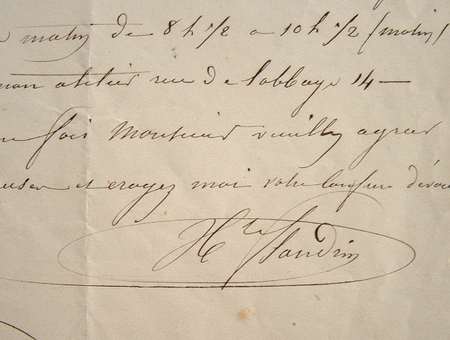 matin de 8 h 1/2 a 10 h 1/2 (matin)
mon atelier rue de l'abbaye 14 —
fois Monsieur veuillez agreer
et croyez moi votre dévou
Hte Flandrin